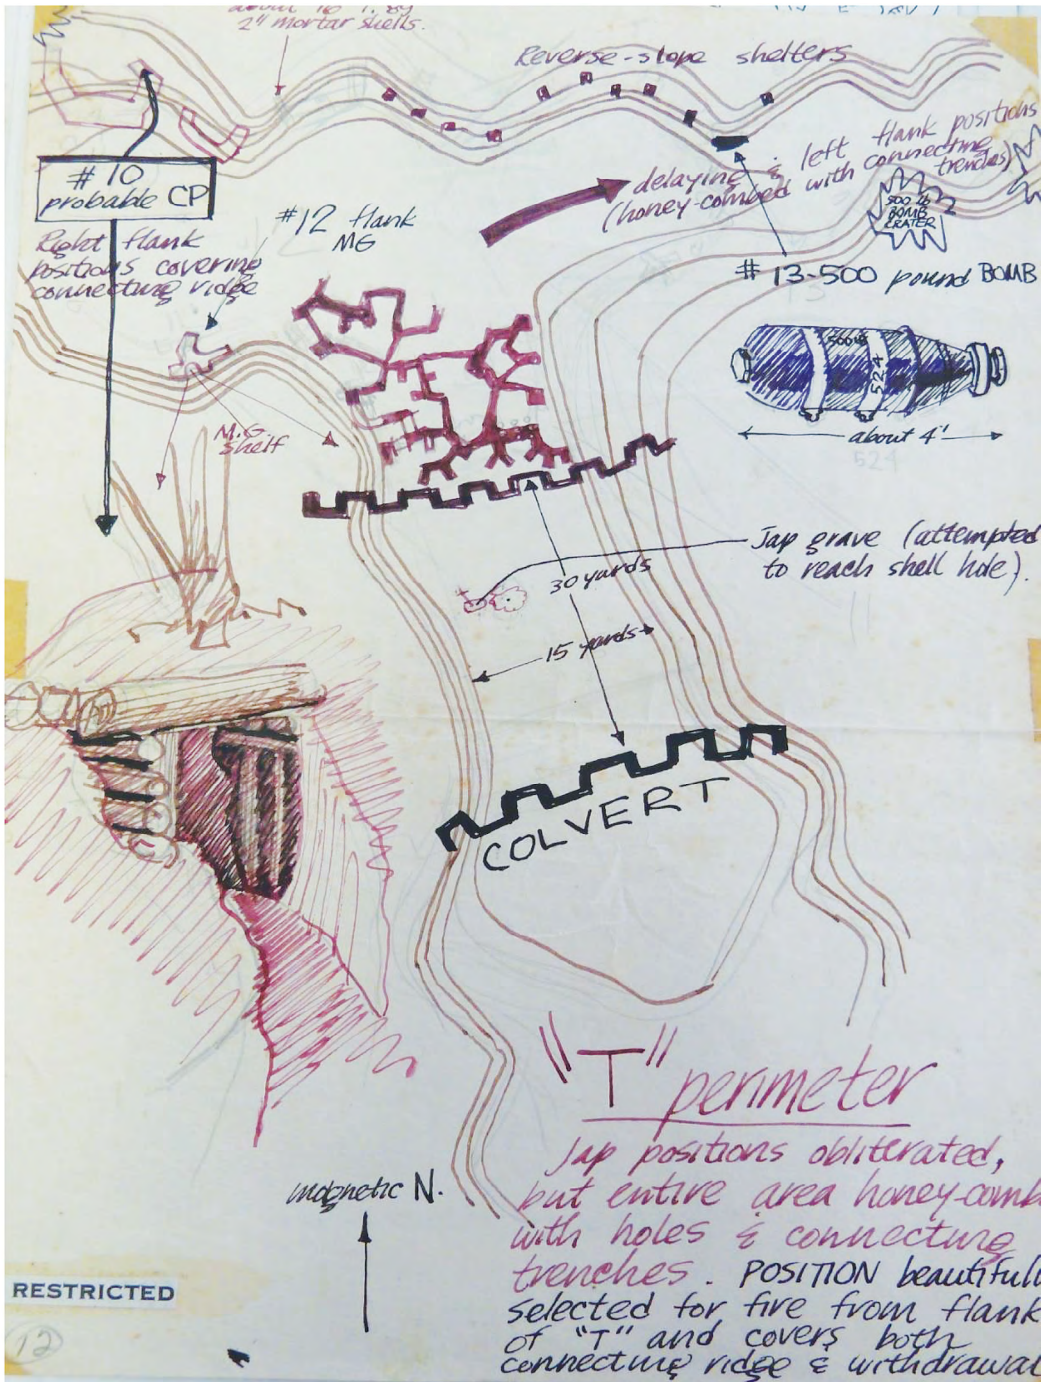 about 16 T.89
2" mortar shells.
Reverse-slope shelters
delaying & left flank positions
(honey-combed with connecting
trenches)
# 10
probable CP
Right flank
positions covering
connecting ridge
#12 flank
MG
500 lb
BOMB
CRATER
# 13-500 pound BOMB
500 lb
524
about 4'
524
M.G
shelf
Jap grave (attempted
to reach shell hole).
30 yards
15 yards
COLVERT
"T" perimeter
Jap positions obliterated,
but entire area honey-comb
with holes & connecting
trenches. POSITION beautifull
selected for fire from flank
of "T" and covers both
connecting ridge & withdrawal
magnetic N.
RESTRICTED
12